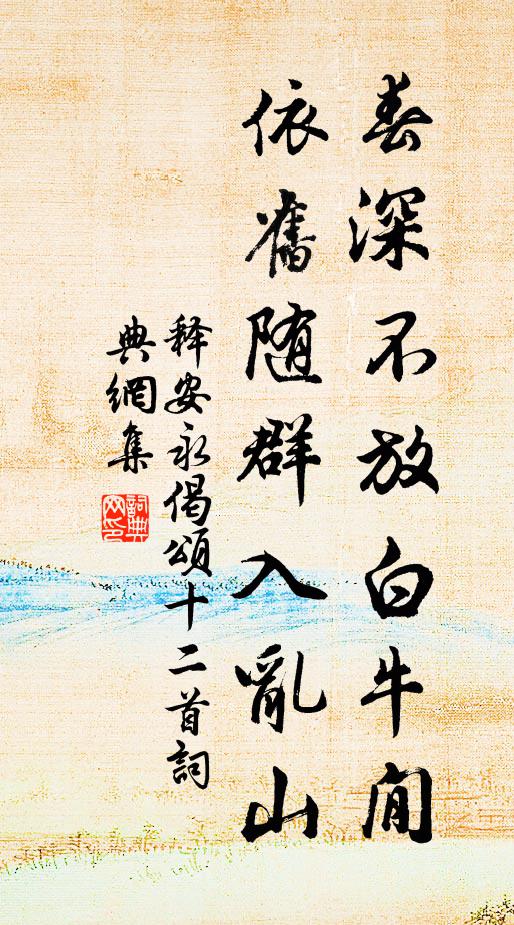 春深不放白牛閒
依舊随群入亂山
释安永偈頌十二首詞
典網集
詞典
网印